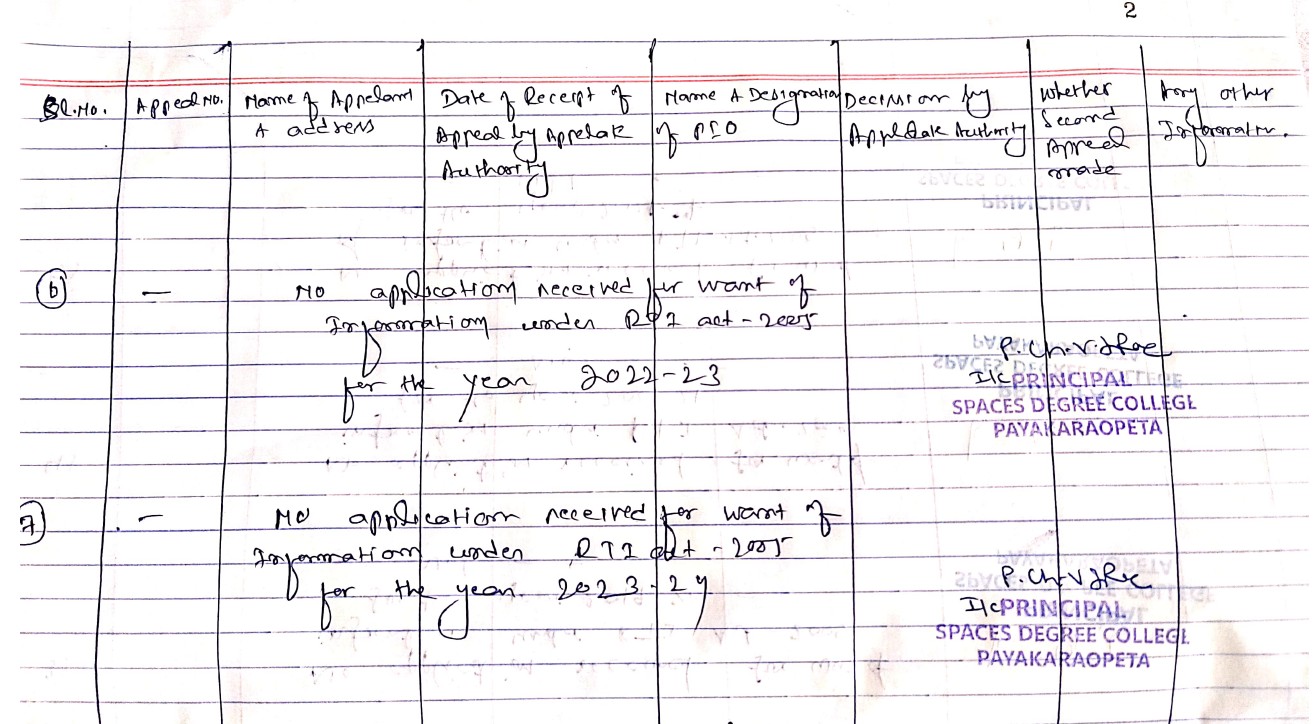 2
Sl.No. Appeal No. Name of Appelant & address Date of Receipt of Appeal by Appelate Authority Name & Designation of PIO Decision by Appelate Authority Whether Second Appeal made Any other Information.
6 — No application received for want of
Information under RTI act - 2005
for the year 2022-23
P. Ch. V.
I/c PRINCIPAL
SPACES DEGREE COLLEGE
PAYAKARAOPETA
7 — No application received for want of
Information under RTI act - 2005
for the year 2023-24
P. Ch. V
I/c PRINCIPAL
SPACES DEGREE COLLEGE
PAYAKARAOPETA